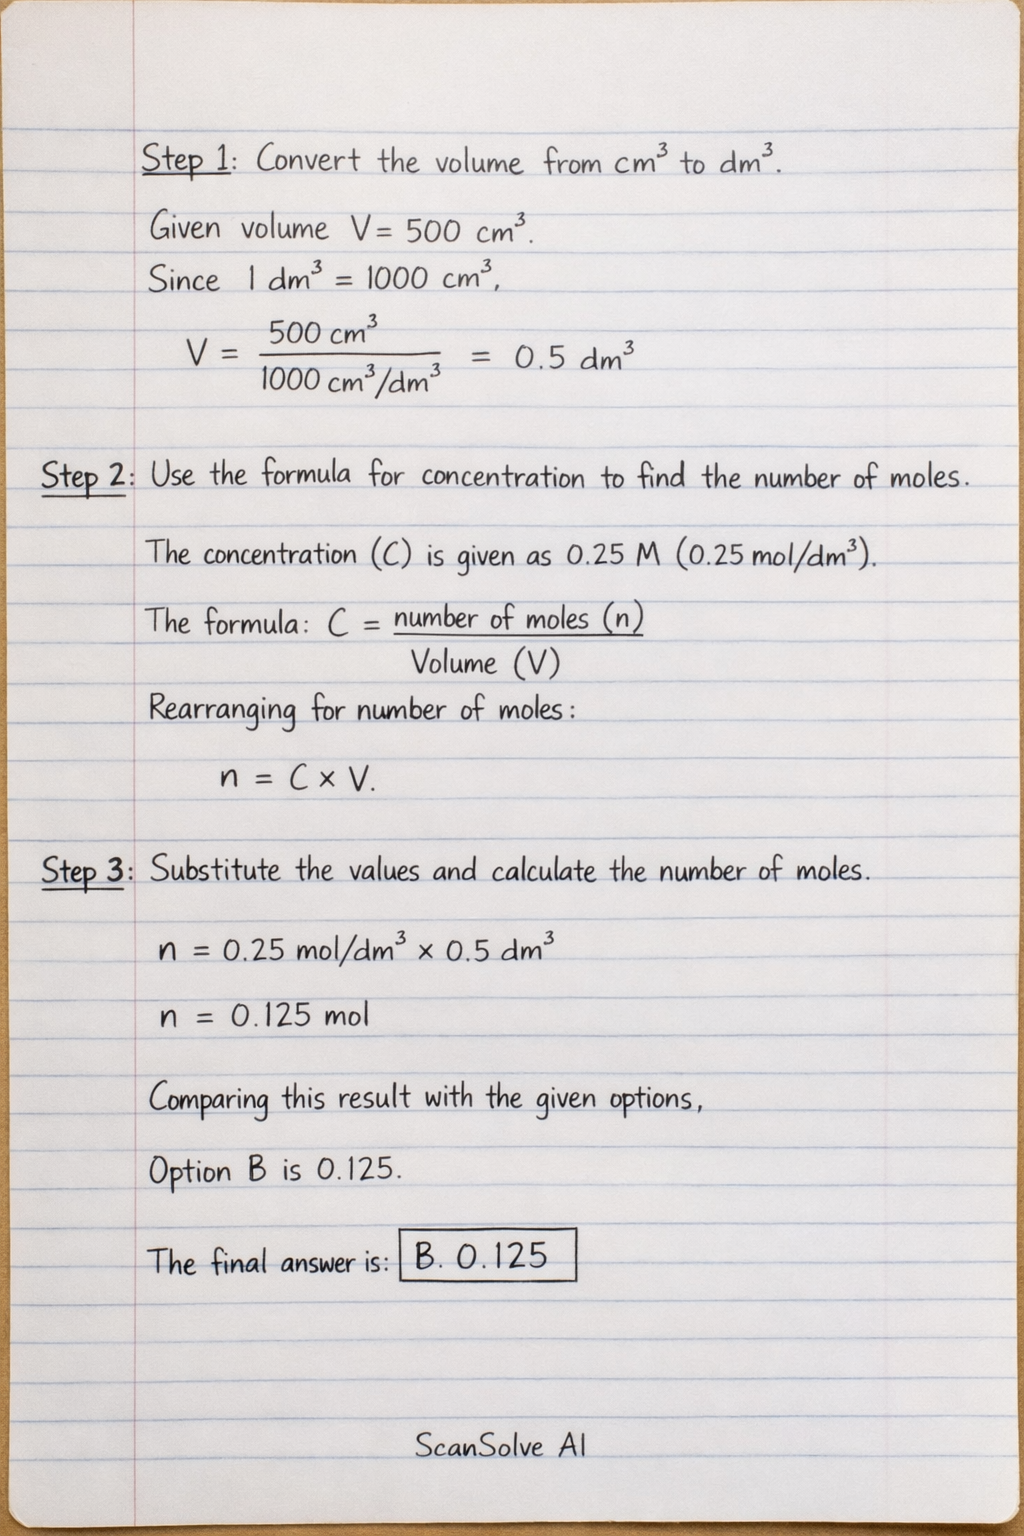 Step 1: Convert the volume from cm³ to dm³.
Given volume V = 500 cm³.
Since 1 dm³ = 1000 cm³,
V = 500 cm³ / 1000 cm³/dm³ = 0.5 dm³
Step 2: Use the formula for concentration to find the number of moles.
The concentration (C) is given as 0.25 M (0.25 mol/dm³).
The formula: C = number of moles (n) / Volume (V)
Rearranging for number of moles:
n = C × V.
Step 3: Substitute the values and calculate the number of moles.
n = 0.25 mol/dm³ × 0.5 dm³
n = 0.125 mol
Comparing this result with the given options,
Option B is 0.125.
The final answer is: B. 0.125
ScanSolve AI